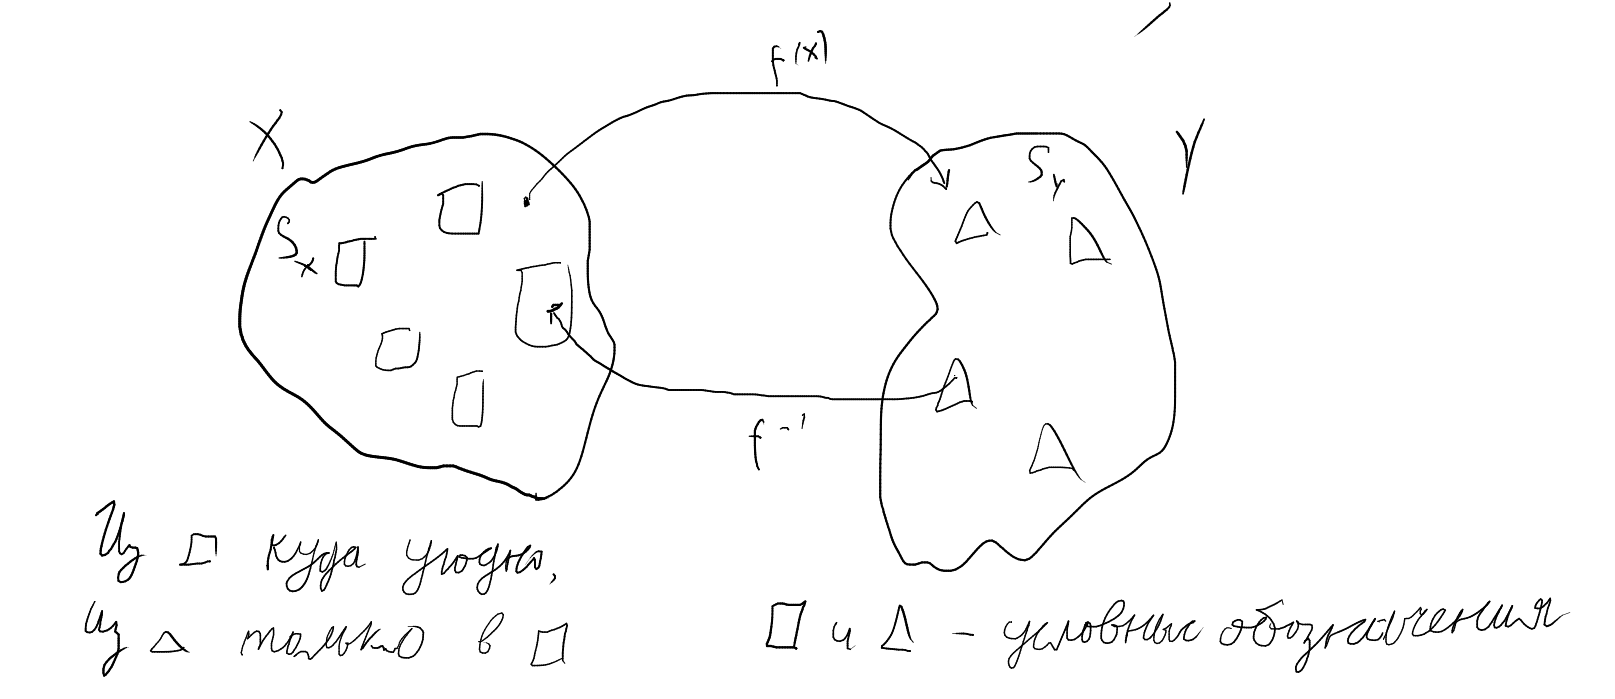 f(x)
X
Y
S_x
S_Y
f⁻¹
Из □ куда угодно,
из △ только в □
□ и △ – условные обозначения